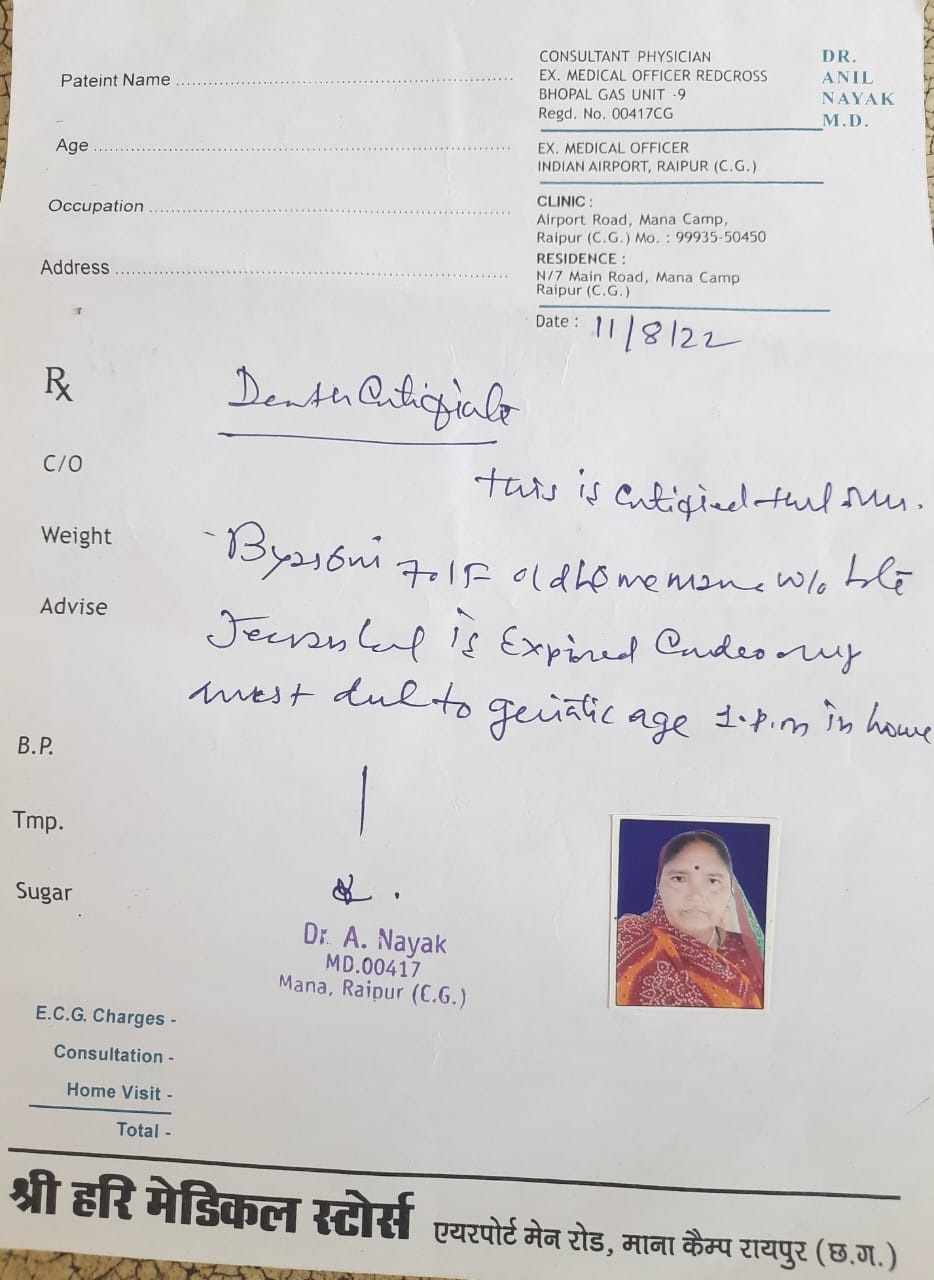 Pateint Name
Age
Occupation
Address
CONSULTANT PHYSICIAN
EX. MEDICAL OFFICER REDCROSS
BHOPAL GAS UNIT -9
Regd. No. 00417CG
DR.
ANIL
NAYAK
M.D.
EX. MEDICAL OFFICER
INDIAN AIRPORT, RAIPUR (C.G.)
CLINIC :
Airport Road, Mana Camp,
Raipur (C.G.) Mo. : 99935-50450
RESIDENCE :
N/7 Main Road, Mana Camp
Raipur (C.G.)
Date : 11/8/22
Rx
Death Certificate
C/O
this is certified that
Weight
old w/o late
Advise
is Expired
due to age 1.p.m in home
B.P.
Tmp.
Sugar
Dr. A. Nayak
MD.00417
Mana, Raipur (C.G.)
E.C.G. Charges -
Consultation -
Home Visit -
Total -
श्री हरि मेडिकल स्टोर्स एयरपोर्ट मेन रोड, माना कैम्प रायपुर (छ.ग.)